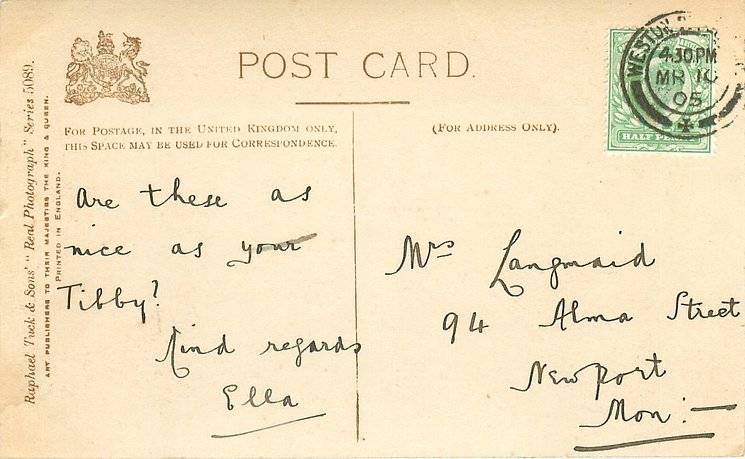 POST CARD.
Raphael Tuck & Sons' "Real Photograph" Series 5089.
ART PUBLISHERS TO THEIR MAJESTIES THE KING & QUEEN.
PRINTED IN ENGLAND.
FOR POSTAGE, IN THE UNITED KINGDOM ONLY,
THIS SPACE MAY BE USED FOR CORRESPONDENCE.
(FOR ADDRESS ONLY).
4.30 PM
MR 10
05
HALF PENNY
Are these as
nice as your
Tibby?
Kind regards
Ella
Mrs Langmaid
94 Alma Street
Newport
Mon:—